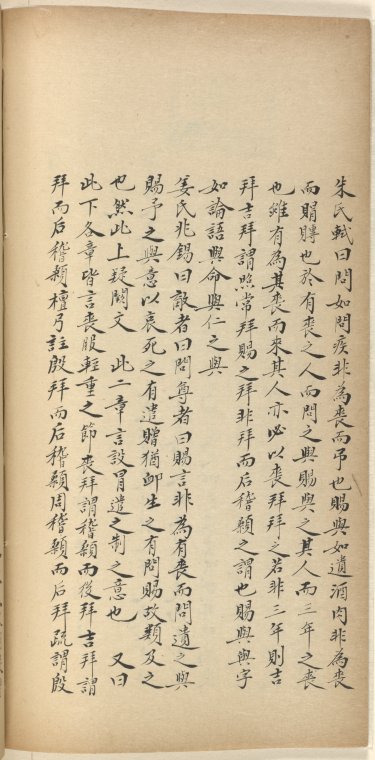 朱氏軾曰問如問疾非為喪而弔也賜與如遺酒肉非為喪
而賵賻也於有喪之人而問之與賜與之其人而三年之喪
也雖有為其喪而來其人亦必以喪拜拜之若非三年則吉
拜吉拜謂照常拜賜之拜非拜而后稽顙之謂也賜與與字
如論語與命與仁之與
姜氏兆錫曰敵者曰問尊者曰賜言非為有喪而問遺之與
賜予之與意以哀死之有遣贈猶卹生之有問賜故類及之
也然此上疑闕文　此二章言設冒遣之制之意也　又曰
此下各章皆言喪服輕重之節　喪拜謂稽顙而後拜吉拜謂
拜而后稽顙檀弓註殷拜而后稽顙周稽顙而后拜疏謂殷